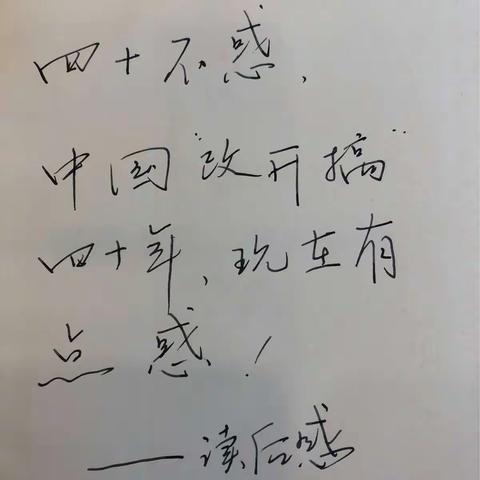 四十不惑，
中国“改开搞”
四十年，现在有
点惑！
——读后感